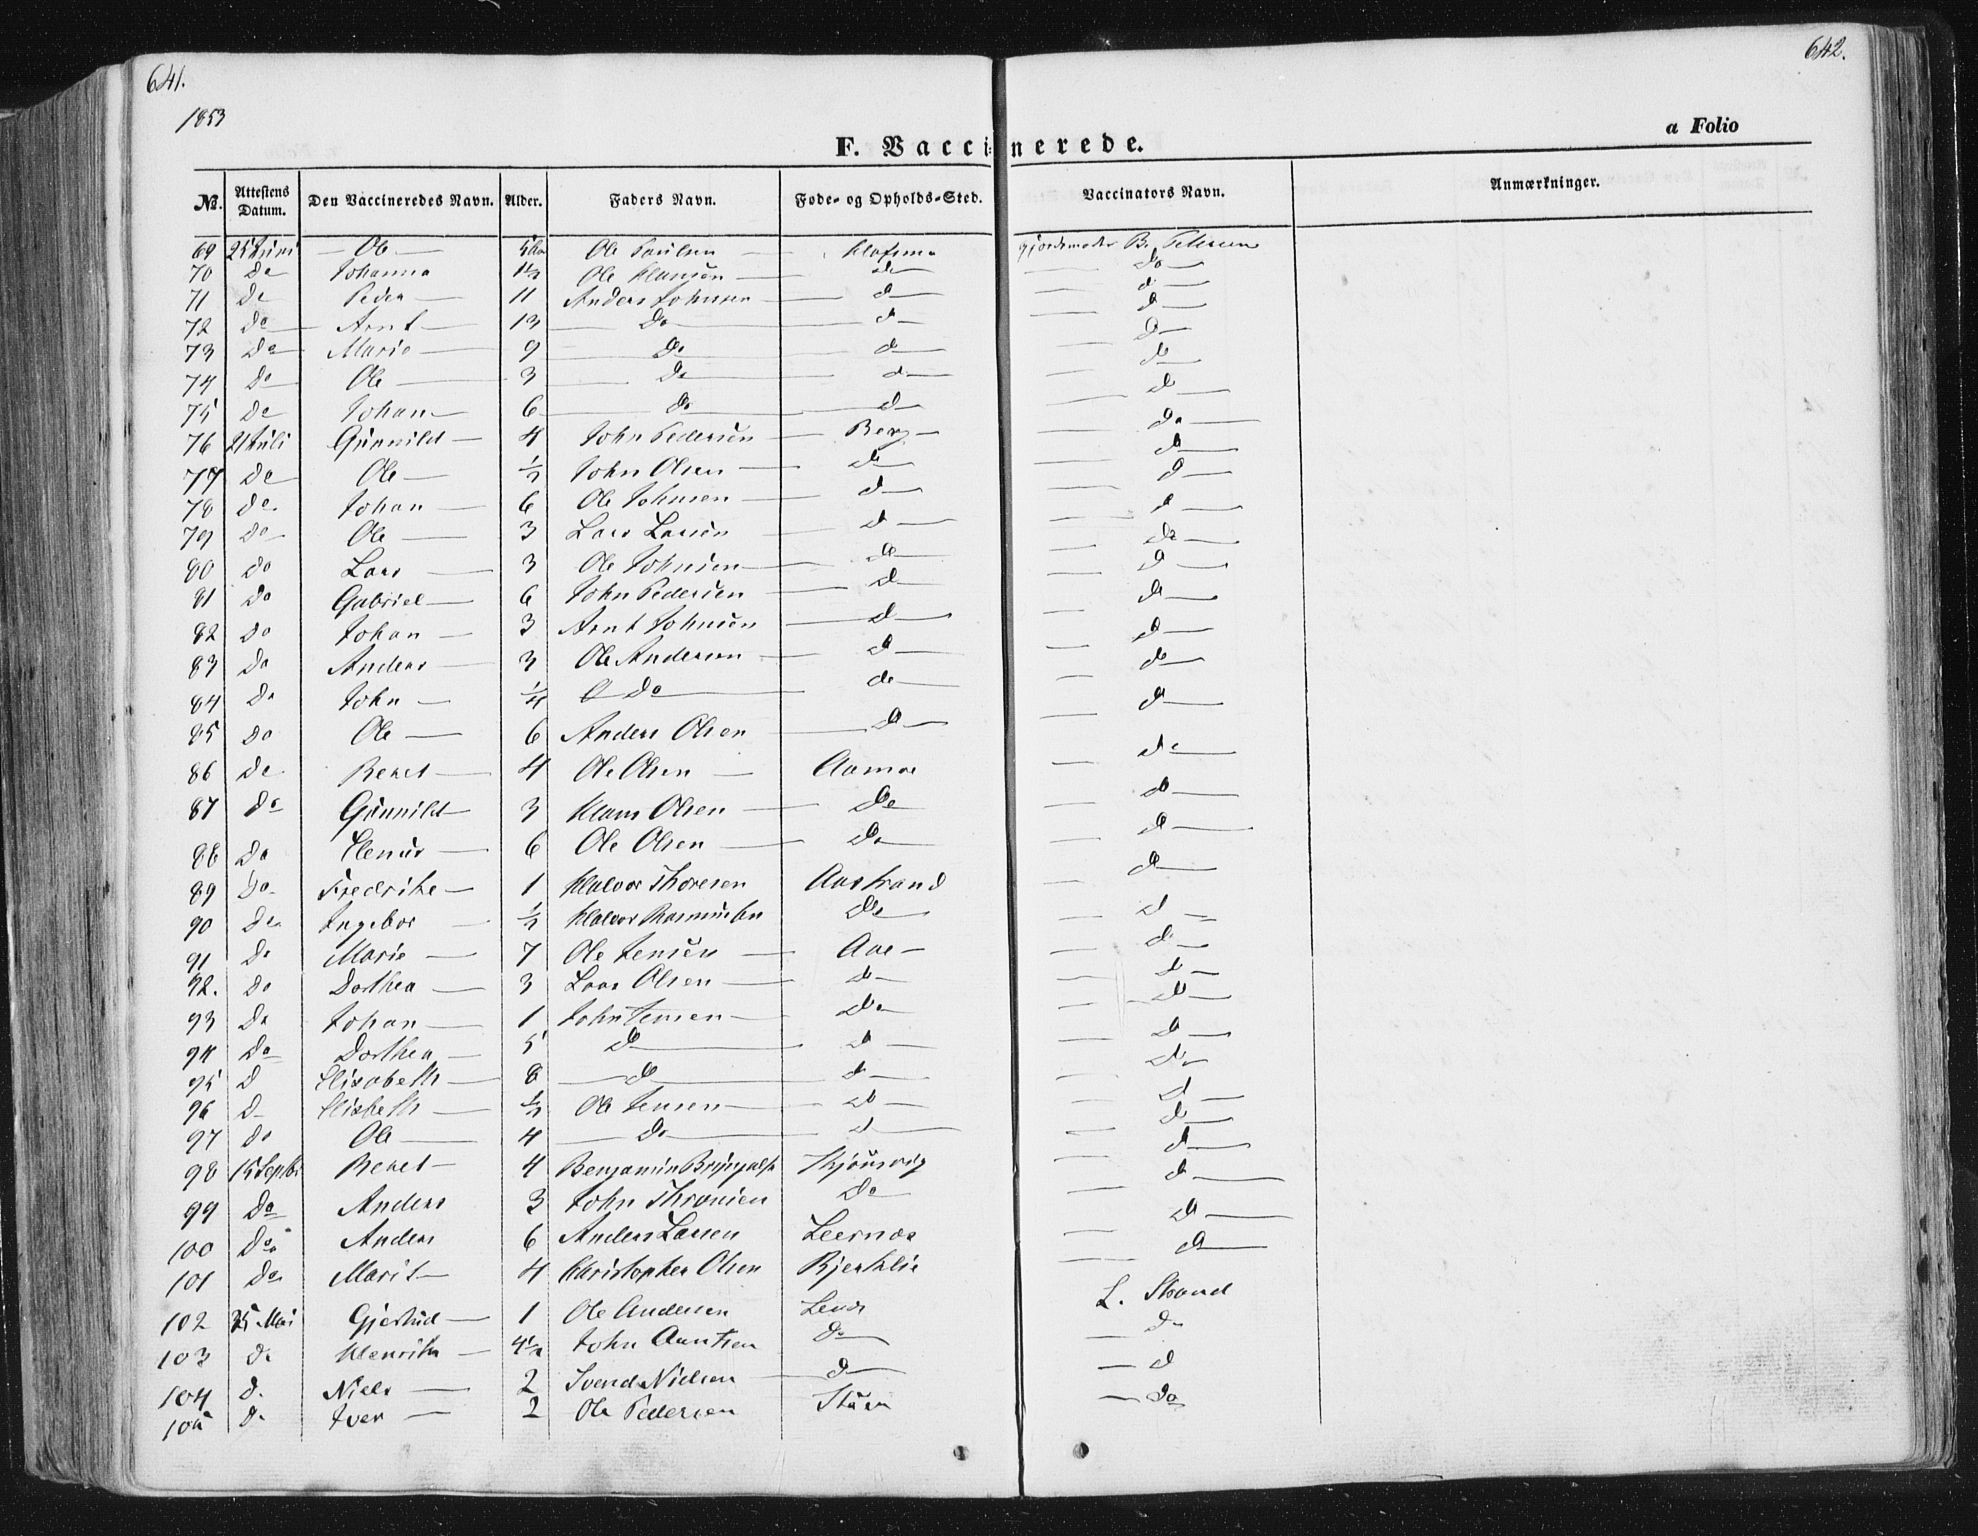 641.
642.
1853
a Folio
F. Vaccinerede.
No. Attestens Datum. Den Vaccineredes Navn. Alder. Faders Navn. Føde- og Opholds-Sted. Vaccinators Navn. Anmærkninger.
69 25 Juni Ole Ole Paulsen
70 Do Johanna 1 1/2 Ole Hansen Do Do
71 Do Peder 11 Anders Johnsen Do Do
72 Do Arnt 13 Do Do Do
73 Do Marie 9 Do Do Do
74 Do Ole 3 Do Do Do
75 Do Johan 6 Do Do Do
76 21 Juli Gunnild 4 John Pedersen Berg Do
77 Do Ole 1/2 John Olsen Do Do
78 Do Johan 6 Ole Johnsen Do Do
79 Do Ole 3 Lars Larsen Do Do
80 Do Lars 3 Ole Johnsen Do Do
81 Do Gabriel 6 John Pedersen Do Do
82 Do Johan 3 Arnt Johnsen Do Do
83 Do Anders 3 Ole Andersen Do Do
84 Do John 1/4 Do Do Do
85 Do Ole 6 Anders Olsen Do Do
86 Do Beret 4 Ole Olsen Aamoe Do
87 Do Gunnild 3 Klaus Olsen Do Do
88 Do 6 Ole Olsen Do Do
89 Do Fredrike 1 Halvor Thoresen Aastrand Do
90 Do Ingebor 1/2 Halvor Rasmussen Do Do
91 Do Marie 7 Ole Jensen Aae Do
92. Do Dorthea 3 Lars Olsen Do Do
93 Do Johan 1 John Jensen Do Do
94 Do Dorthea 5 Do Do Do
95 D Elisabeth 8 Do Do Do
96 D Elisbeth 1/2 Ole Jensen Do D
97 Do Ole 4 Do D Do
98 15 Septbr Beret 4 Benjamin Do
99 Do Anders 3 John Thronsen Do Do
100 Do Anders 6 Anders Larsen Leernæs Do
101 Do Marit 4 Christopher Olsen Bjerklie Do
102 25 Mai Gjertrud 1 Ole Andersen L. Strand
103 Do 4 1/2 John Do Do
104 D. Niels 2 Svend Nielsen D D
105 D. Iver 2 Ole Pedersen Do